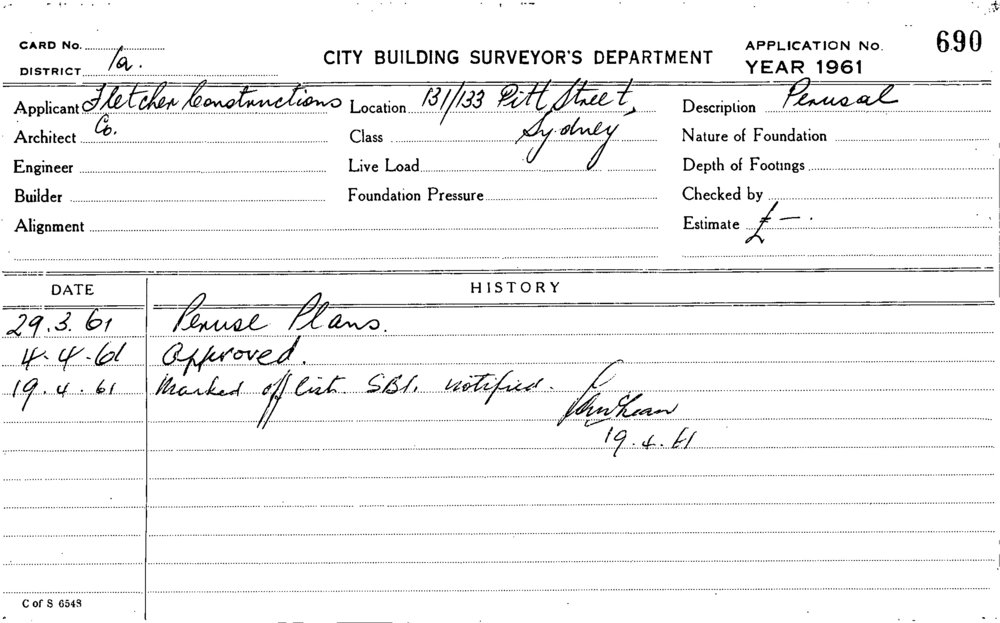 CARD No.
CITY BUILDING SURVEYOR'S DEPARTMENT
APPLICATION No. 690
DISTRICT 1a.
YEAR 1961
Applicant Fletcher Constructions Location 131/133 Pitt Street, Description Perusal
Architect Co. Class Sydney Nature of Foundation
Engineer Live Load Depth of Footings
Builder Foundation Pressure Checked by
Alignment Estimate £ — .
DATE HISTORY
29.3.61 Peruse Plans.
4.4.61 Approved.
19.4.61 Marked off list. SBI. notified.
19.4.61
C of S 6548